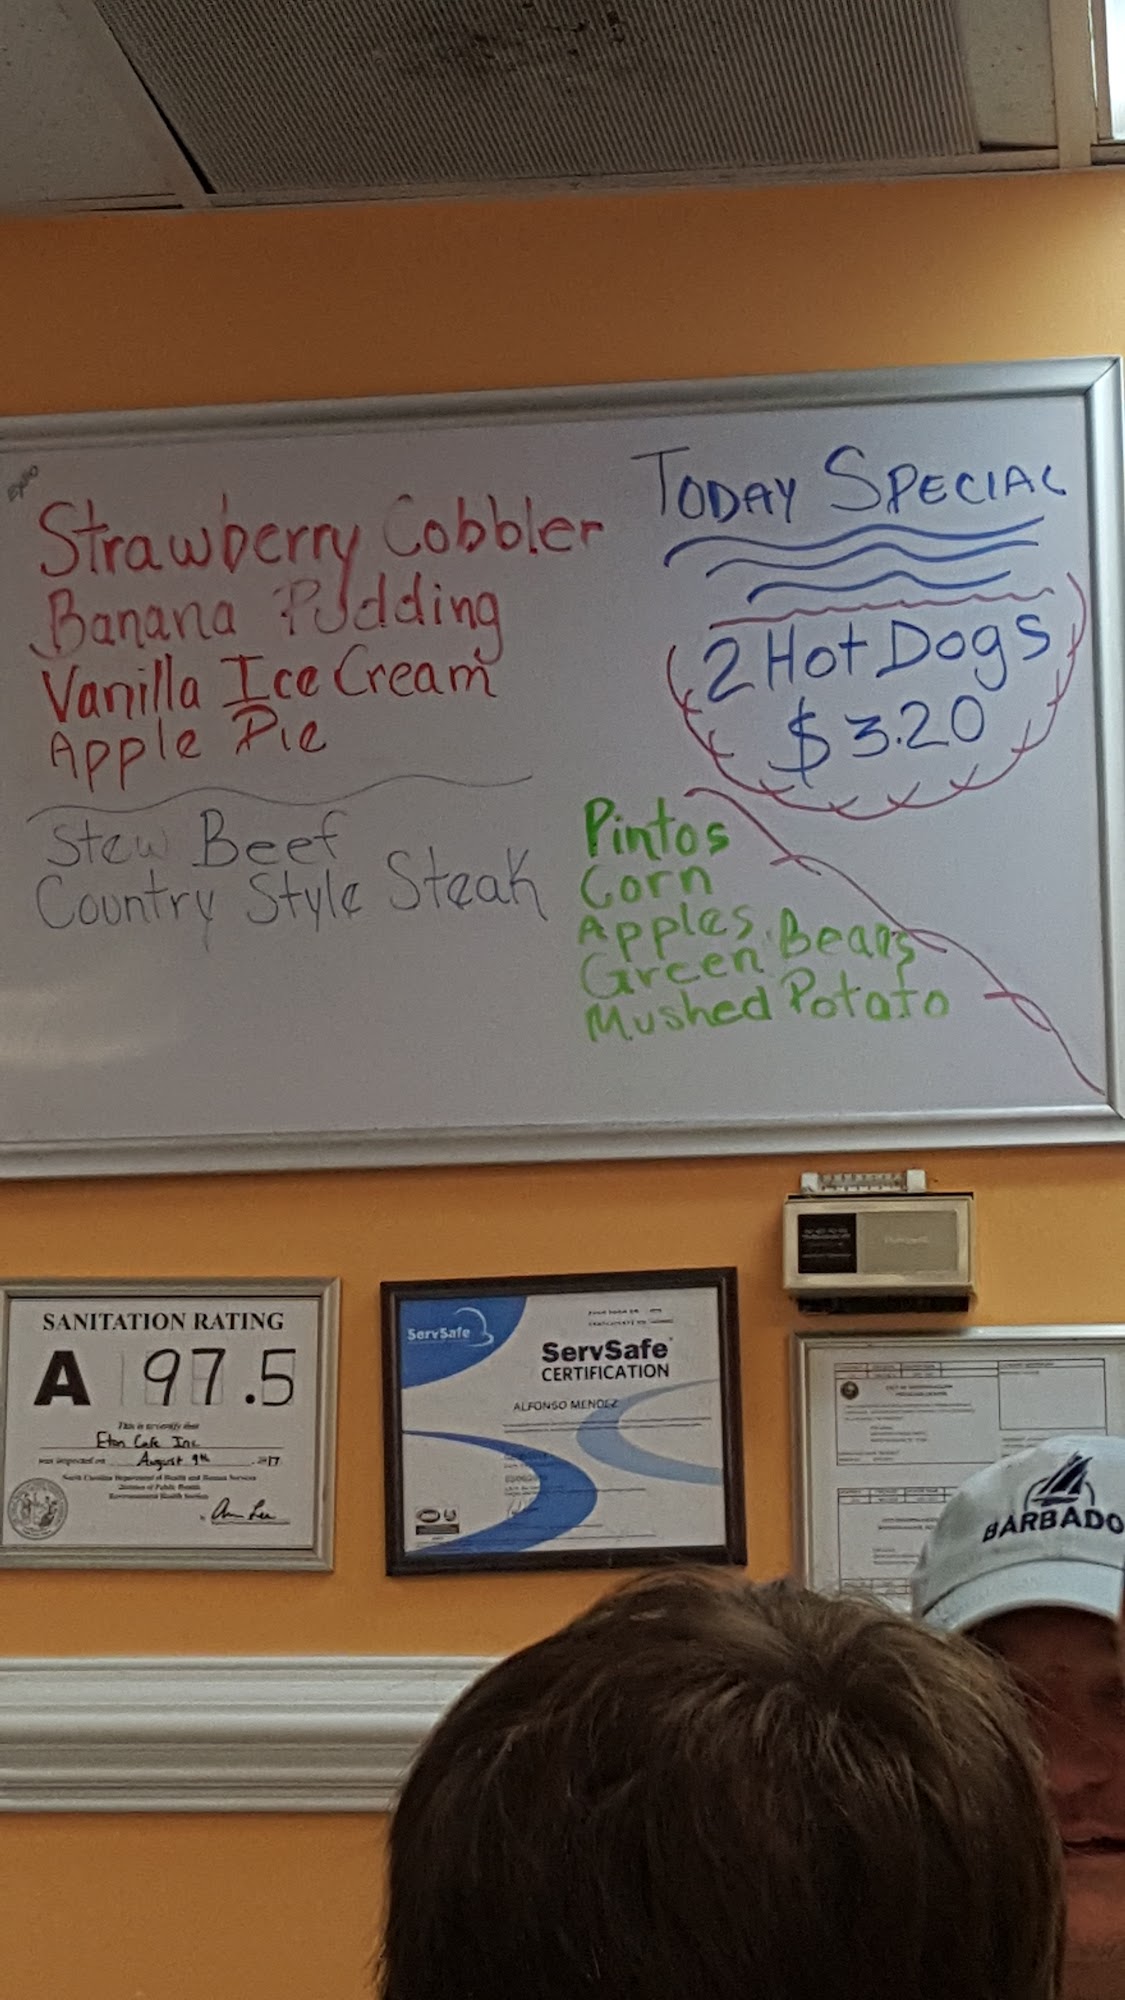 EXPO
Strawberry Cobbler
Banana Pudding
Vanilla Ice Cream
Apple Pie
Stew Beef
Country Style Steak
TODAY SPECIAL
2 Hot Dogs
$ 3.20
Pintos
Corn
Apples
Green Beans
Mushed Potato
SANITATION RATING
A 97.5
This is to certify that
Eton Cafe Inc
was inspected on August 9th 2017
North Carolina Department of Health and Human Services
Division of Public Health
Environmental Health Section
ServSafe
ServSafe
CERTIFICATION
ALFONSO MENDEZ
BARBADO